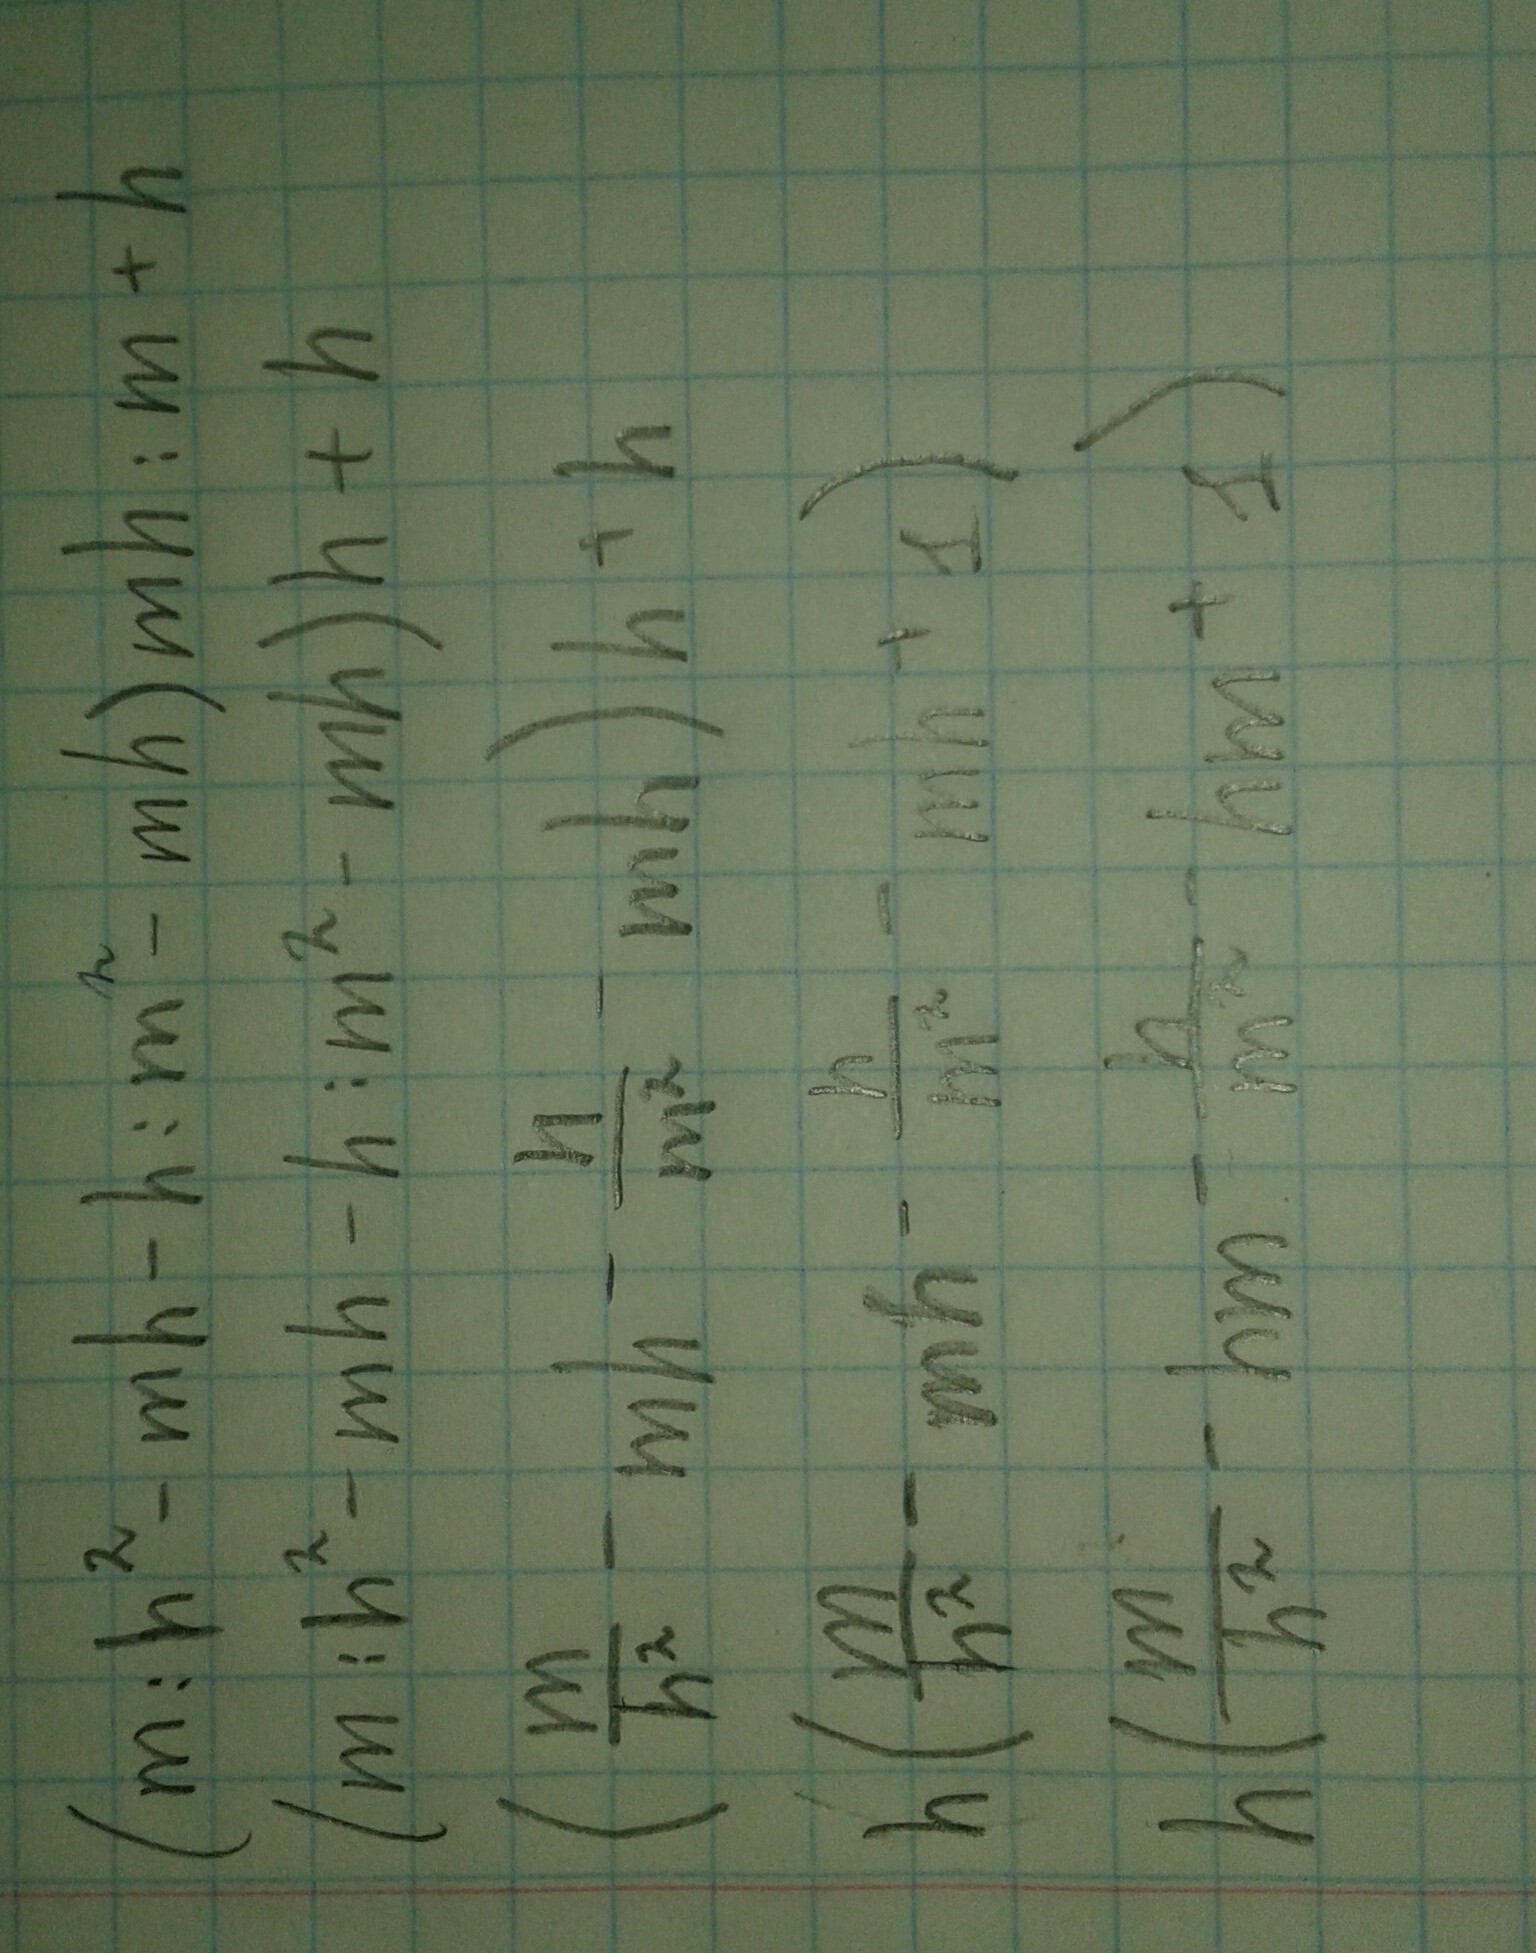 (m:h² - mh - h:m² - mh)mh:m+h
(m:h² - mh - h:m² - mh)h+h
(m/h² - mh - h/m² - mh)h+h
h(m/h² - mh - h/m² - mh + 1)
h(m/h² - hm - h/m² - hm + 1)